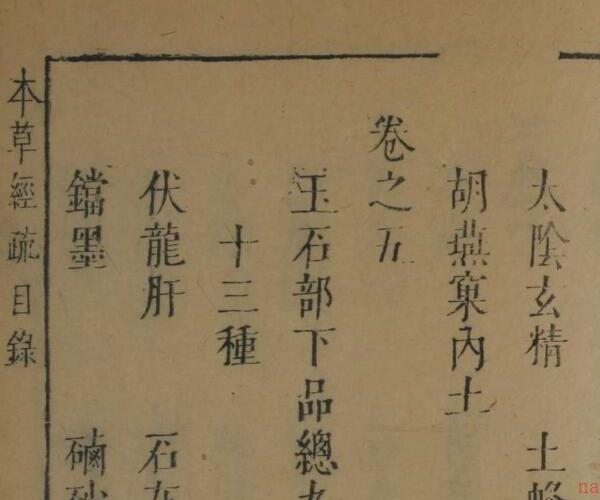 太陰玄精 土蜂
胡燕窠內土
卷之五
玉石部下品總九
十三種
伏龍肝 石灰
鐺墨 礵砂
本草經疏目錄
na